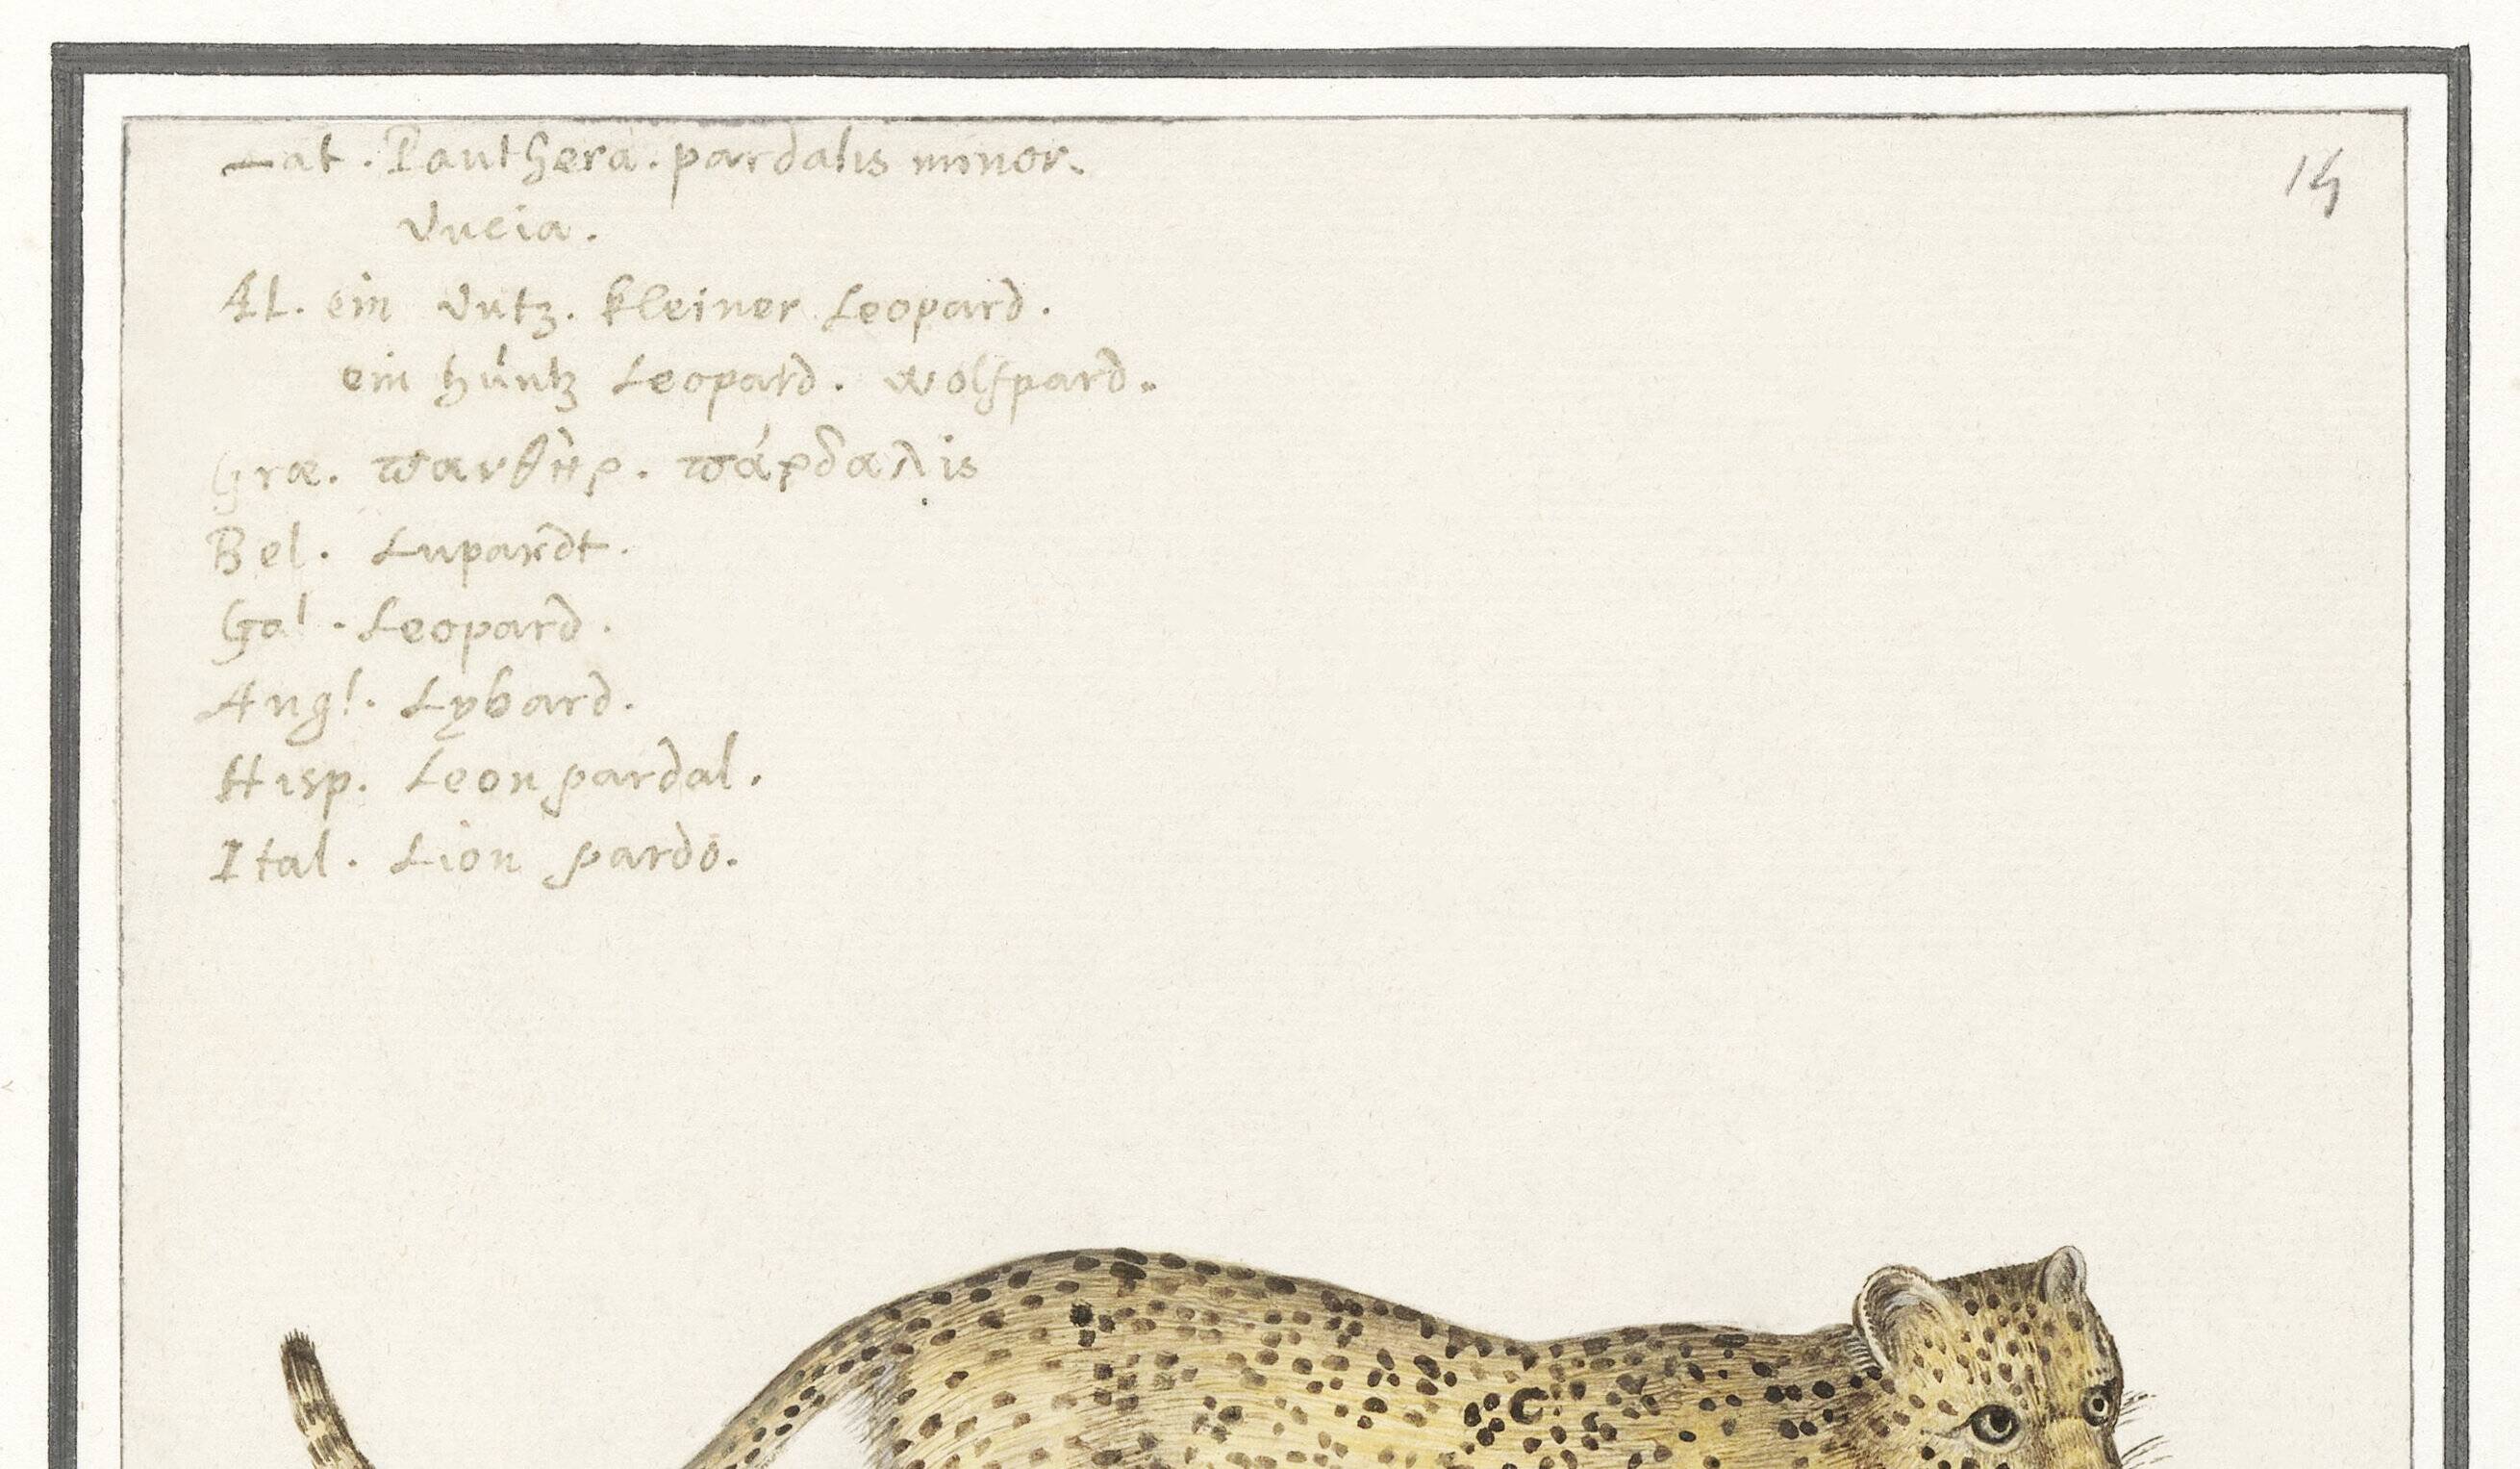 Lat. Panthera. pardalis minor.
Vncia.
Al. ein Vntz. kleiner Leopard.
ein húntz Leopard. wolfpard.
Græ. ϖανθὴρ. ϖάρδαλις
Bel. Lupardt.
Gal. Leopard.
Angl. Lybard.
Hisp. Leon pardal.
Ital. Lion pardo.